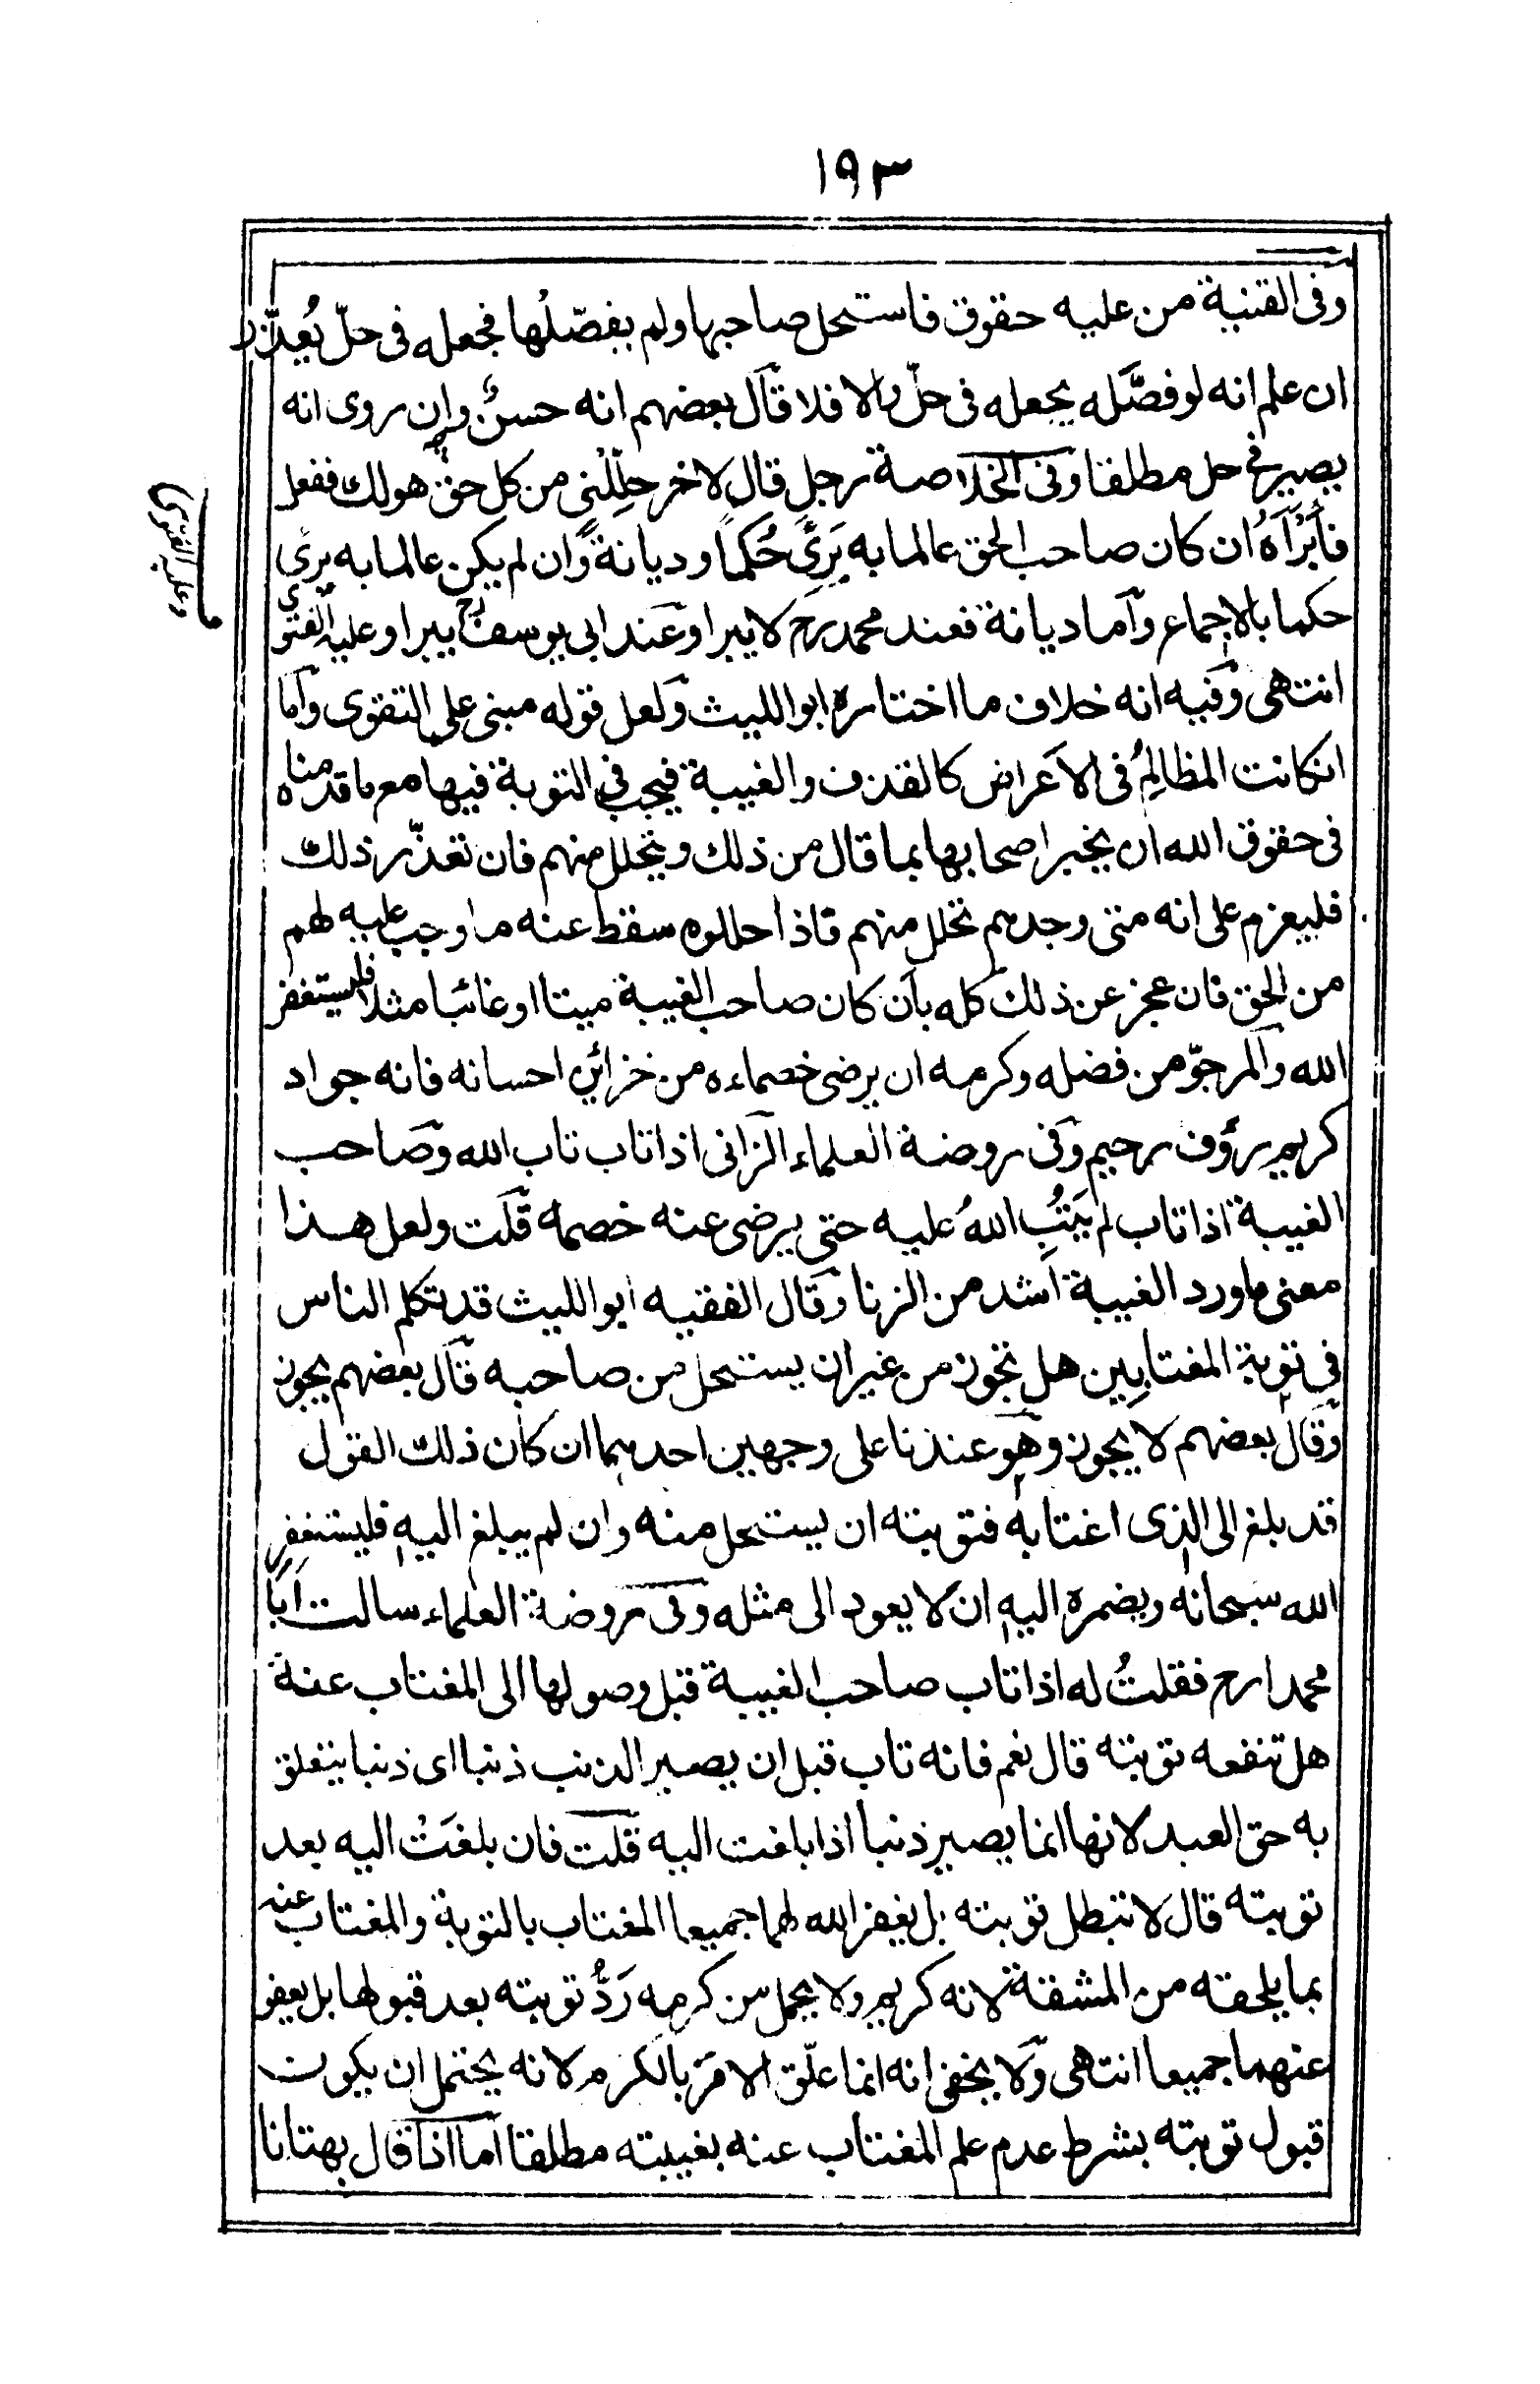 ١٩٣
وفى القنية من عليه حقوق فاستحل صاحبها ولم يفصّلُها فجعله فى حلّ يُعذَر
ان علم انه لو فصَّله يجعله فى حلّ والا فلا قال بعضهم انه حسنٌ وإن روى انه
يصير فى حل مطلقا وفى الخلاصة رجل قال لاخر حلِّلنى من كل حق هو لك ففعل
فأبْرَأَهُ ان كان صاحب الحق عالما به بَرِئَ حُكماً وديانةً وان لم يكن عالما به برئ
حكما بالاجماع وأما ديانة فعند محمد رح لا يبرا وعند ابى يوسف رح يبرا وعليه الفتوى
وعليه الفتوى
انتهى وفيه انه خلاف ما اختاره ابو الليث ولعل قوله مبنى على التقوى وأما
انكانت المظالِمُ فى الاَعراض كالقذف والغيبة فيجب فى التوبة فيها مع ما قدمناه
فى حقوق الله ان يخبر اصحابها بما قال من ذلك ويتحلل منهم فان تعذّر ذلك
فليعزم على انه متى وجدهم تحلل منهم فاذا حللوه سقط عنه ما وجب عليه لهم
من الحق فان عجز عن ذلك كله بأن كان صاحب الغيبة ميتا او غائبا مثلا فليستغفر
الله والمرجوّ من فضله وكرمه ان يرضى خصماءه من خزائن احسانه فانه جواد
كريم رؤف رحيم وفى روضة العلماء الزانى اذا تاب تاب الله وصاحب
الغيبة اذا تاب لم يَتُبِ اللهُ عليه حتى يرضى عنه خصمه قلت ولعل هذا
معنى ما ورد الغيبة اشد من الزنا وقال الفقيه ابو الليث قد تكلم الناس
فى توبة المغتابِين هل تجوز من غير ان يستحل من صاحبه قال بعضهم يجوز
وقال بعضهم لا يجوز وهو عندنا على وجهين احدهما ان كان ذلك القول
قد بلغ الى الذى اغتابه فتوبته ان يستحل منه وان لم يبلغ اليه فليستغفر
الله سبحانه ويضمره اليه ان لا يعود الى مثله وفى روضة العلماء سالت اَبا
محمد ا رح فقلتُ له اذا تاب صاحب الغيبة قبل وصولها الى المغتاب عنه
هل تنفعه توبته قال نعم فانه تاب قبل ان يصير الذنب ذنبا اى ذنبا يتعلق
به حق العبد لانها انما يصير ذنبا اذا بلغت اليه قلت فان بلغَتْ اليه بعد
توبته قال لا تبطل توبته بل يغفر الله لهما جميعا المغتاب بالتوبة والمغتاب عنه
بما يلحقه من المشقة لانه كريم ولا يجمل من كرمه رَدُّ توبته بعد قبولها بل يعفو
عنهما جميعا انتهى ولا يخفى انه انما علّق الامرَ بالكرم لانه يحتمل ان يكون
قبول توبته بشرط عدم علم المغتاب عنه بغيبته مطلقا أما اذا قال بهتانا